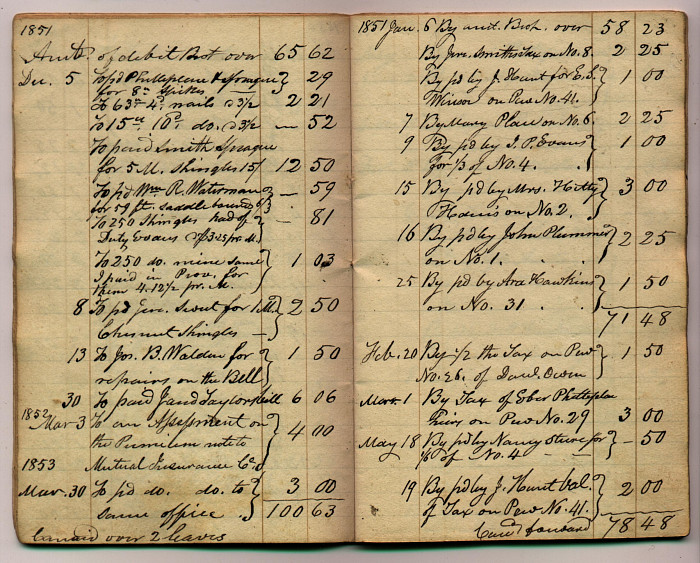 1851
Amt. of debit Brot over 65 62
Dec. 5 To pd Phetteplace & Sprague 29
for 8d. Spikes —
To 63 lb 4d. nails @ 3/2 2 21
To 15 lb 10d. do. @ 3/2 — 52
To paid Smith Sprague
for 5 M. Shingles 15/ 12 50
To pd Wm R. Waterman — 59
for 59 ft. saddle boards
To 250 Shingles had of — 81
Duty Evans @ 3.25 pr. M.
To 250 do. mine same 1 03
I paid in Prov. for
them 4.12/2 pr. M.
8 To pd Jere. Sweet for 1 M. 2 50
Chesnut Shingles —
13 To Jos. B. Walden for 1 50
repairs on the Bell
30 To paid J and Taylors bill 6 06
1852
Mar 3 To an Assessment on 4 00
the Premium note to
1853 Mutual Insurance Co.
Mar. 30 To pd do. do. to 3 00
same office . 100 63
Carried over 2 leaves
1851 Jan. 6 By amt. Broh. over 58 23
By Jere. Smiths Tax on No. 8. 2 25
By pd by J. Hunt for E. S. 1 00
Winsor on Pew No. 41.
7 By Mary Place on No. 6. 2 25
9 By pd by J. P. Evans 1 00
for 1/3 of No. 4. .
15 By pd by Mrs. Hetty 3 00
Harris on No. 2.
16 By pd by John Plummer 2 25
on No. 1. . .
25 By pd by Ara Hawkins 1 50
on No. 31 . .
71 48
Feb. 20 By 1/2 the Tax on Pew 1 50
No. 26. of Danl. Owen
Mar. 1 By Tax of Eber Phetteplace
on Pew No. 29 3 00
May 18 By pd by Nancy Steere for — 50
1/6 of No. 4 — —
19 By pd by J. Hunt bal. 2 00
of Tax on Pew No. 41.
Card forward 78 48